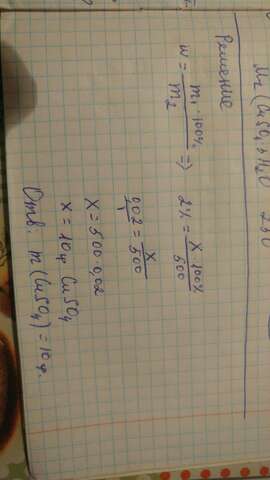 m2 (CuSO4 + H2O
Решение
w = m1 · 100% / m2 => 2% = x · 100% / 500
0,02 / 1 = x / 500
x = 500 · 0,02
x = 10 г CuSO4
Отв: m (CuSO4) = 10 г.